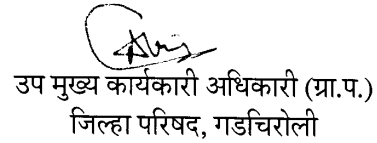 उप मुख्य कार्यकारी अधिकारी (ग्रा.प.)
जिल्हा परिषद, गडचिरोली